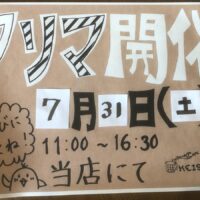 フリマ開催
7月31日(土)
11:00〜16:30
当店にて